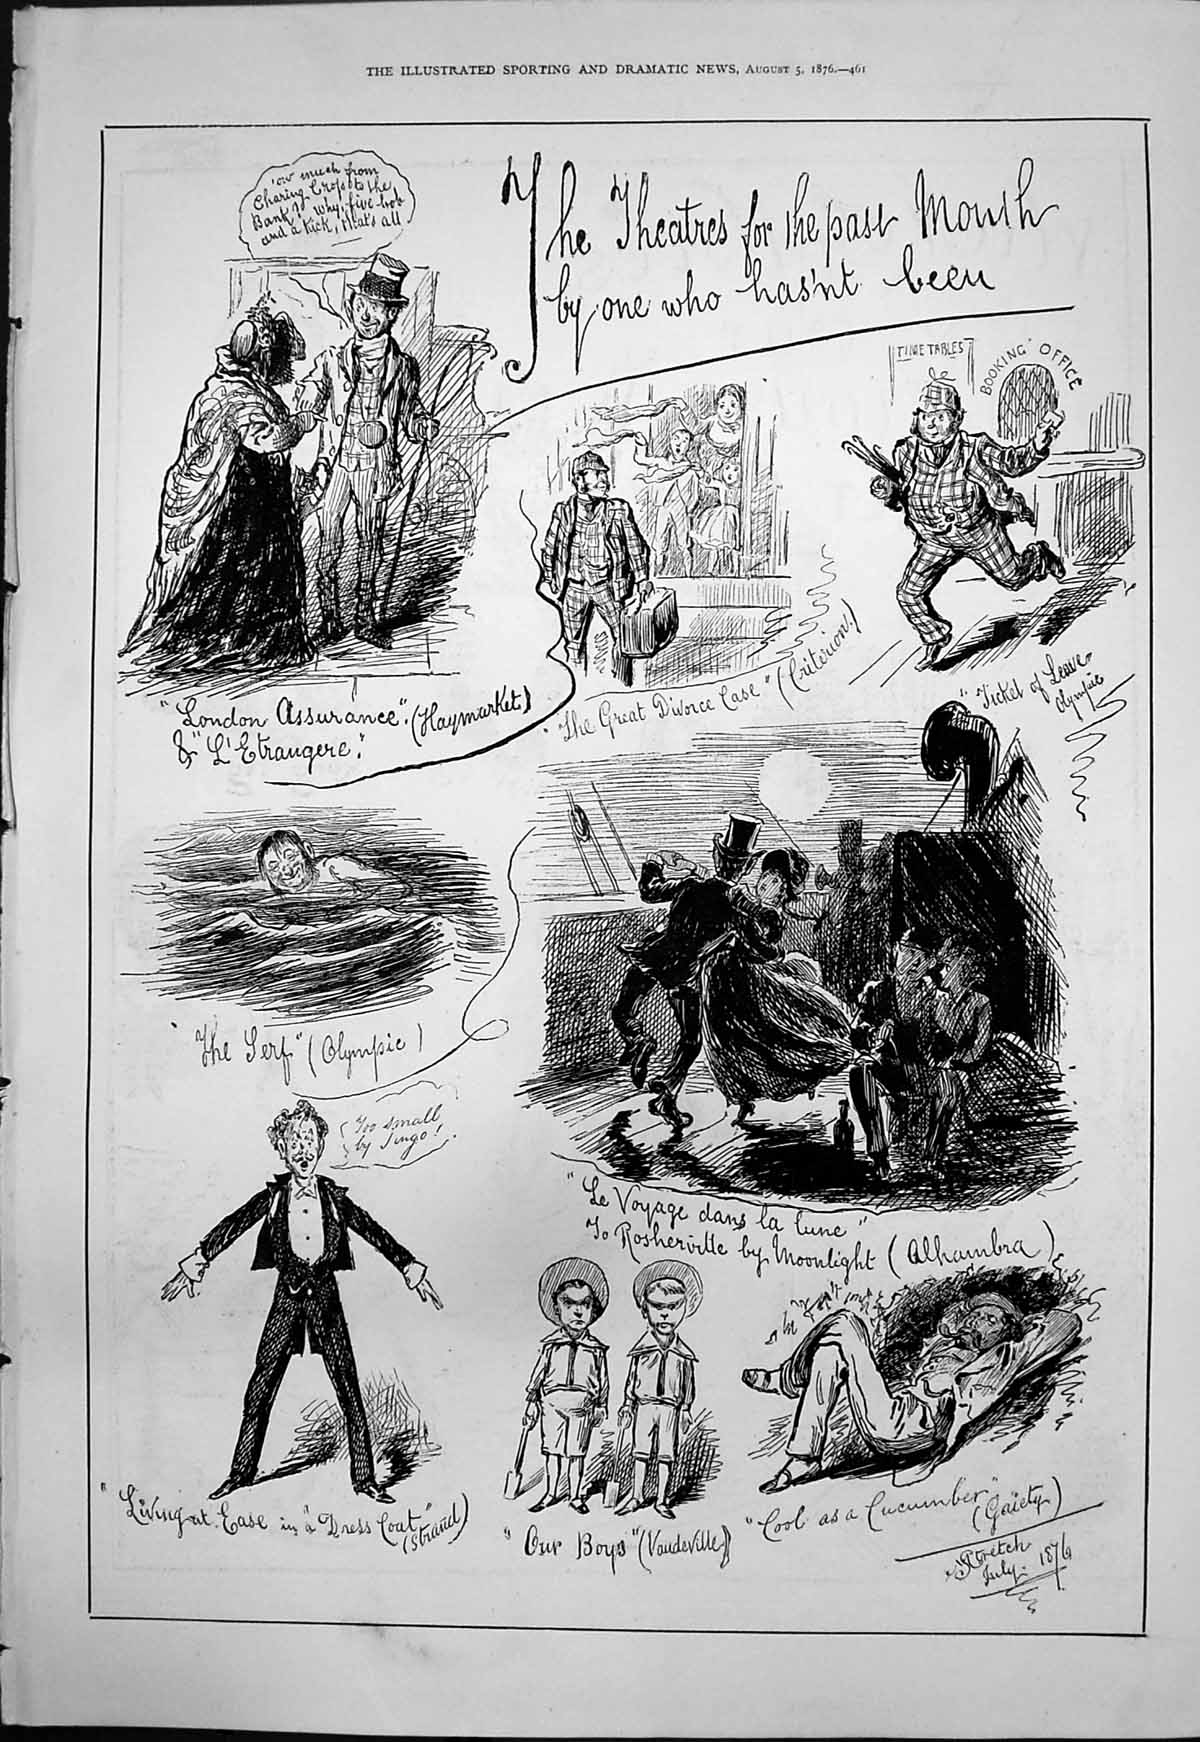 THE ILLUSTRATED SPORTING AND DRAMATIC NEWS, AUGUST 5, 1876.—461
'ow much from
Charing Cross to the
Bank? why, five bob
and a kick, that's all
The Theatres for the past Month
by one who has'nt been
TIME TABLES
BOOKING OFFICE
"London Assurance". (Haymarket)
& "L'Etrangere".
"The Great Divorce Case" (Criterion.)
"Ticket of Leave"
Olympic
"The Serf" (Olympic)
Too small
by Jingo!
"Le Voyage dans la lune"
To Rosherville by Moonlight (Alhambra)
"Living at Ease in "a Dress Coat"
(Strand)
"Our Boys" (Vaudeville)
"Cool as a Cucumber"
(Gaiety)
Stretch
July. 1876